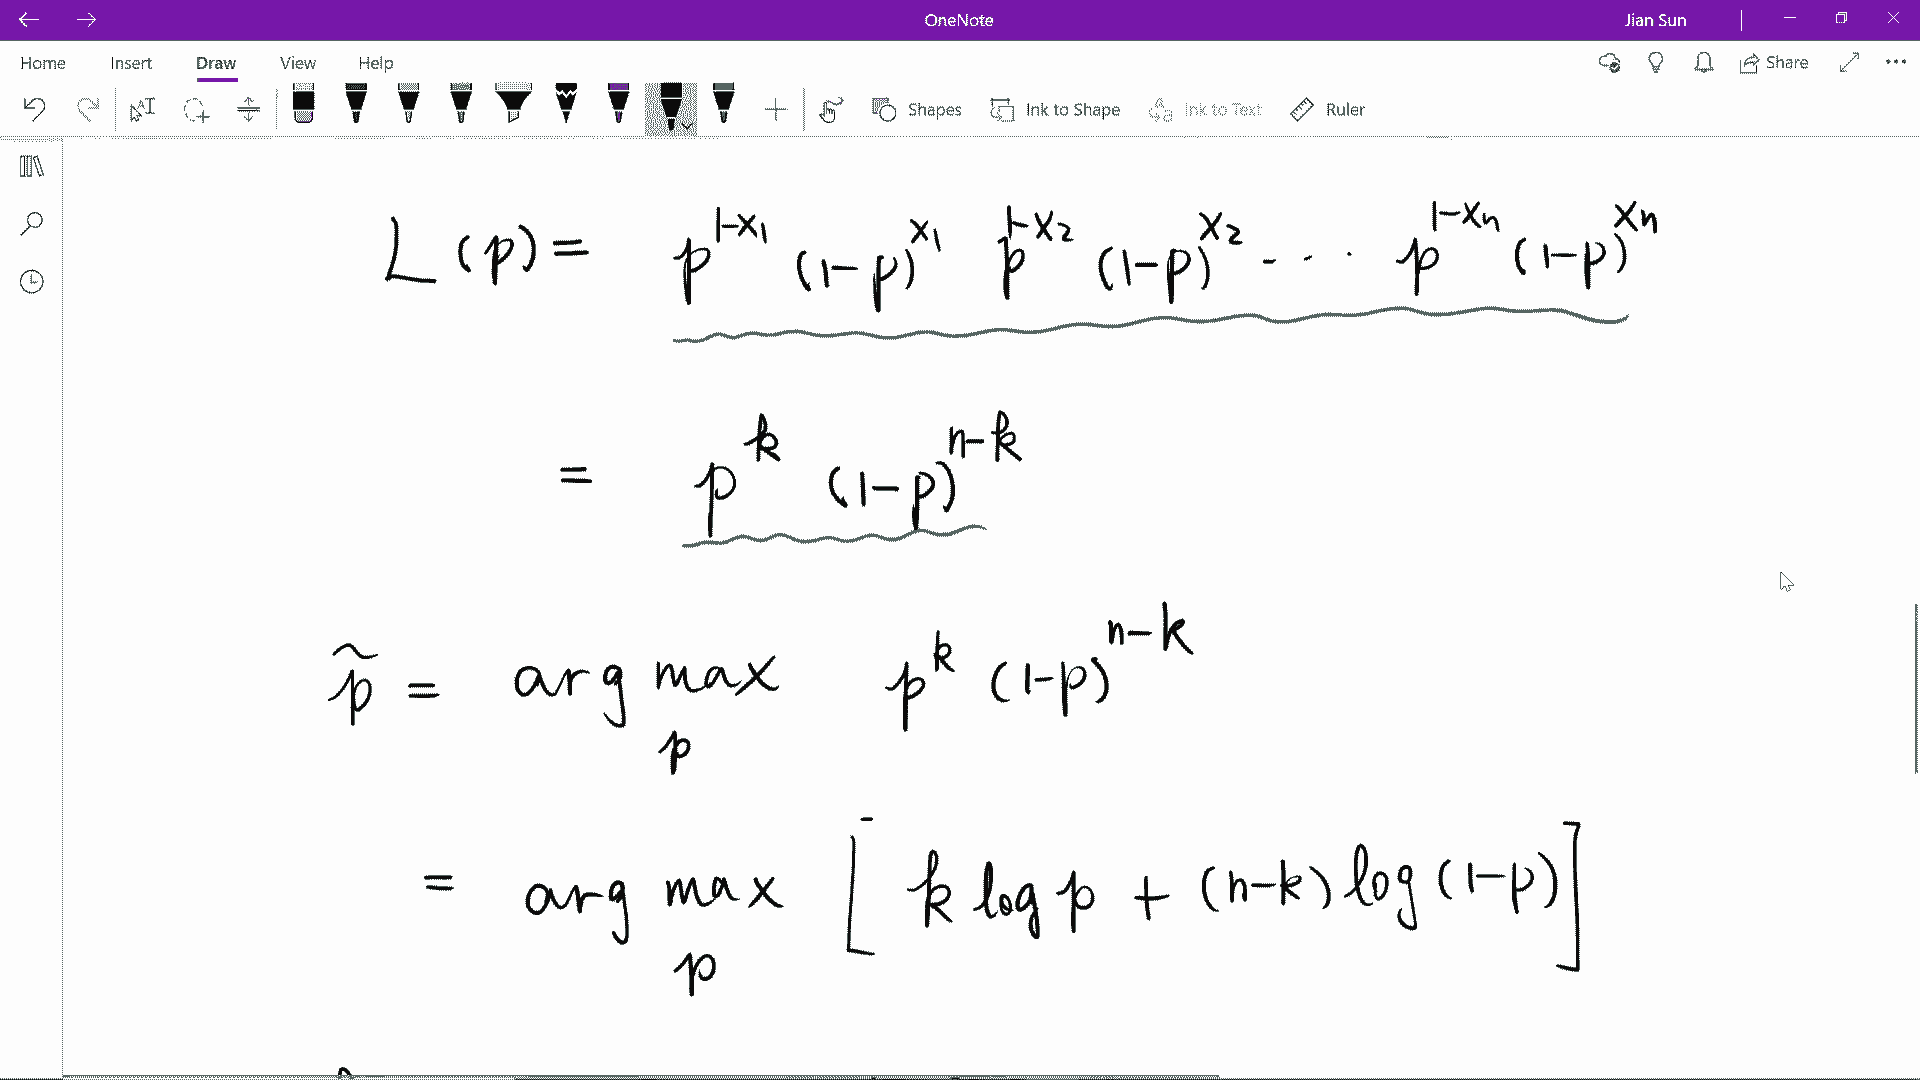 OneNote
Jian Sun
Home Insert Draw View Help
Share
Shapes Ink to Shape Ink to Text Ruler
L (p) = p^{1-x_1} (1-p)^{x_1} p^{1-x_2} (1-p)^{x_2} ... p^{1-x_n} (1-p)^{x_n}
= p^k (1-p)^{n-k}
p̃ = arg max p^k (1-p)^{n-k}
p
= arg max [ k log p + (n-k) log (1-p) ]
p